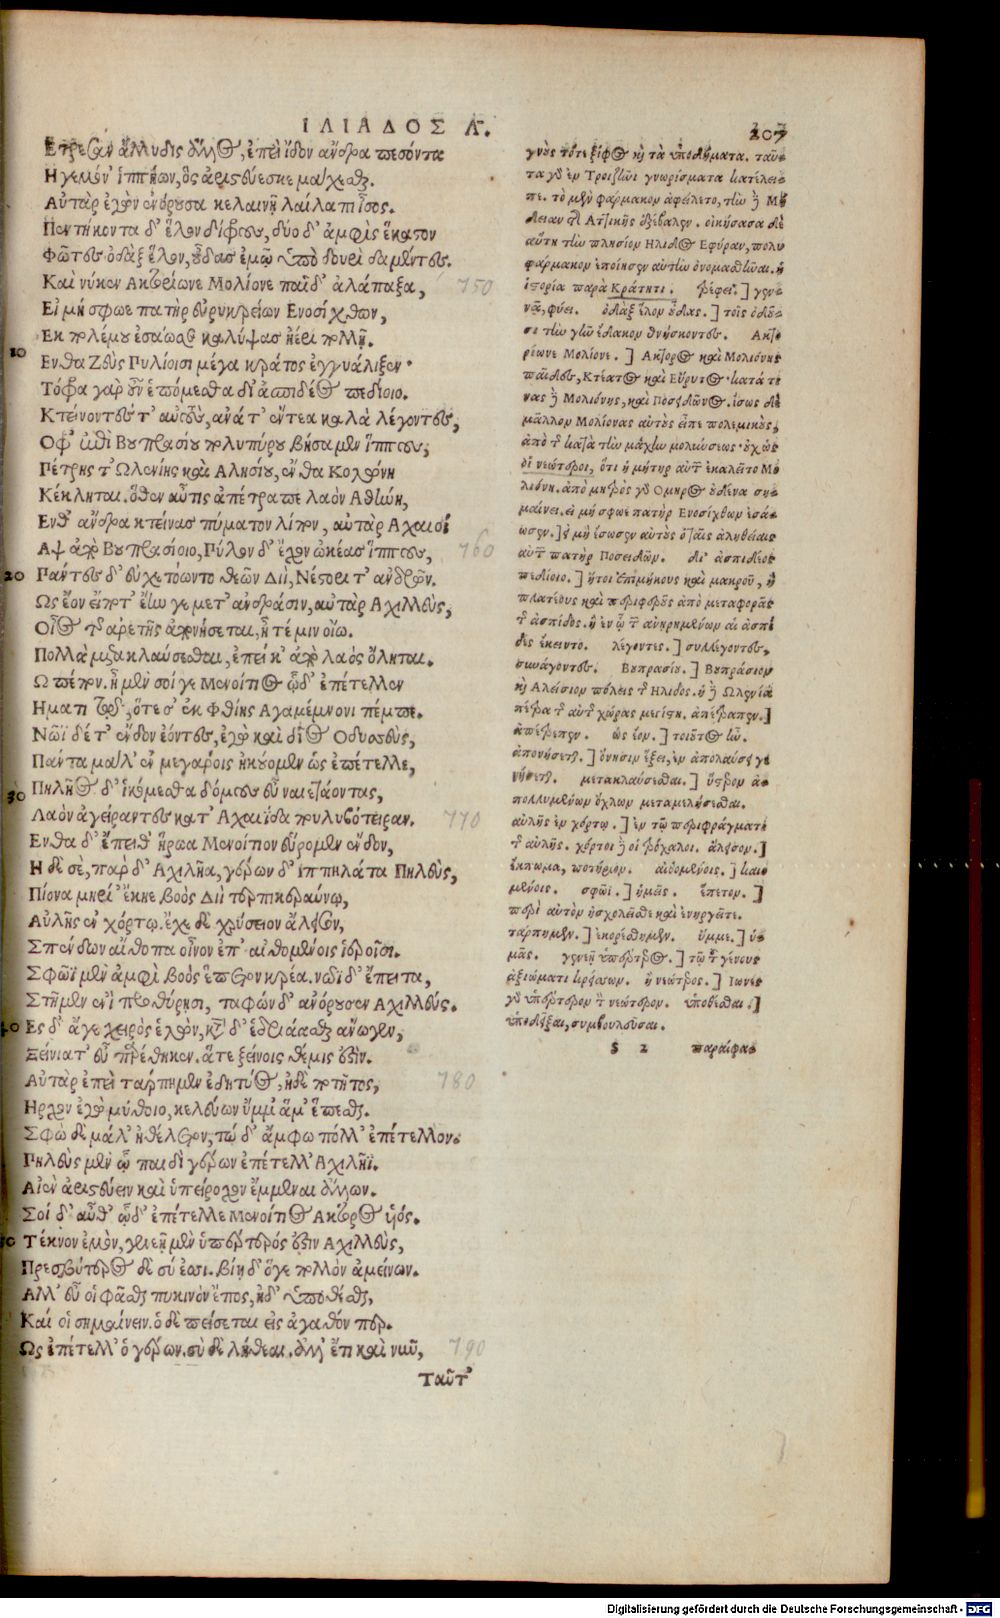 ΙΛΙΑΔΟΣ Λ.
207
Ετρεσαν ἄλλυδις ἄλλος, ἐπεὶ ἴδον ἄνδρα πεσόντα
Ηγεμόν' ἱππήων, ὃς ἀριστεύεσκε μάχεσθαι.
Αὐτὰρ ἐγὼν ἐνόρουσα κελαινῇ λαίλαπι ἶσος.
Πεντήκοντα δ' ἕλον δίφρους, δύο δ' ἀμφὶς ἕκαστον
Φῶτες ὀδὰξ ἕλον, οὖδας ἐμῷ ὑπὸ δουρὶ δαμέντες.
Καὶ νύ κεν Ακτορίωνε Μολίονε παῖδ' ἀλάπαξα, 750
Εἰ μή σφωε πατὴρ εὐρυκρείων Ενοσίχθων,
Εκ πολέμου ἐσάωσε καλύψας ἠέρι πολλῇ.
10
Ενθα Ζεὺς Πυλίοισι μέγα κράτος ἐγγυάλιξεν·
Τόφρα γὰρ οὖν ἑπόμεσθα δἰ ἀσπιδέος πεδίοιο.
Κτείνοντες τ' αὐτοὺς, ἀνά τ' ἔντεα καλὰ λέγοντες,
Οφ' ἐπὶ Βουπρασίου πολυπύρου βήσαμεν ἵππους,
Πέτρης τ' Ωλενίης καὶ Αλησίου, ἔνθα Κολώνη
Κέκληται. ὅθεν αὖτις ἀπέτραπε λαὸν Αθήνη,
Ενθ' ἄνδρα κτείνας πύματον λίπον, αὐτὰρ Αχαιοὶ
Αψ ἀπὸ Βουπρασίοιο, Πύλον δ' ἔχον ὠκέας ἵππους, 760
20 Πάντες δ' εὐχετόωντο θεῶν Διὶ, Νέστορι τ' ἀνδρῶν.
Ως ἔον εἴποτ' ἔην γε μετ' ἀνδράσιν, αὐτὰρ Αχιλλεὺς,
Οἶος τῆς ἀρετῆς ἀπονήσεται, ἦ τέ μιν οἴω.
Πολλὰ μετακλαύσεσθαι, ἐπεί κ' ἀπὸ λαὸς ὄληται.
Ω πέπον. ἦ μὲν σοί γε Μενοίτιος ὧδ' ἐπέτελλεν
Ηματι τῷδ', ὅτε σ' ἐκ Φθίης Αγαμέμνονι πέμπε.
Νῶϊ δέ τ' ἔνδον ἐόντες, ἐγὼ καὶ δῖος Οδυσσεὺς,
Πάντα μάλ' ἐν μεγάροις ἠκούομεν ὡς ἐπέτελλε,
30 Πηλῆος δ' ἱκόμεσθα δόμους εὖ ναιετάοντας,
Λαὸν ἀγείραντες κατ' Αχαιΐδα πουλυβότειραν. 770
Ενθα δ' ἔπειθ' ἥρωα Μενοίτιον εὕρομεν ἔνδον,
Η δὲ σὲ, πὰρ δ' Αχιλῆα, γέρων δ' ἱππηλάτα Πηλεὺς,
Πίονα μηρί' ἔκηε βοὸς Διὶ τερπικεραύνῳ,
Αὐλῆς ἐν χόρτῳ. ἔχε δὲ χρύσειον ἄλεισον,
Σπένδων αἴθοπα οἶνον ἐπ' αἰθομένοις ἱεροῖσι.
Σφῶϊ μὲν ἀμφὶ βοὸς ἕπετον κρέα. νῶϊ δ' ἔπειτα,
Στῆμεν ἐνὶ προθύρῃσι, ταφὼν δ' ἀνόρουσεν Αχιλλεύς.
40 Ες δ' ἄγε χειρὸς ἑλὼν, κατὰ δ' ἑδριάασθαι ἄνωγεν,
Ξείνιά τ' εὖ παρέθηκεν. ἅτε ξείνοις θέμις ἐστίν.
Αὐτὰρ ἐπεὶ τάρπημεν ἐδητύος, ἠδὲ ποτῆτος, 780
Ηρχον ἐγὼ μύθοιο, κελεύων ὔμμ' ἅμ' ἕπεσθαι.
Σφὼ δὲ μάλ' ἠθέλετον, τώ δ' ἄμφω πόλλ' ἐπέτελλον.
Πηλεὺς μὲν ᾧ παιδὶ γέρων ἐπέτελλ' Αχιλῆϊ.
Αἰὲν ἀριστεύειν καὶ ὑπείροχον ἔμμεναι ἄλλων.
Σοὶ δ' αὖθ' ὧδ' ἐπέτελλε Μενοίτιος Ακτορος υἱός.
50 Τέκνον ἐμὸν, γενεῇ μὲν ὑπέρτερός ἐστιν Αχιλλεὺς,
Πρεσβύτερος δὲ σύ ἐσσι. βίῃ δ' ὅγε πολλὸν ἀμείνων.
Αλλ' εὖ οἱ φᾶσθαι πυκινὸν ἔπος, ἠδ' ὑποθέσθαι,
Καί οἱ σημαίνειν. ὁ δὲ πείσεται εἰς ἀγαθόν περ.
Ως ἐπέτελλ' ὁ γέρων. σὺ δὲ λήθεαι. ἀλλ' ἔτι καὶ νῦν, 790
Ταῦτ'
γνοὺς τότε ξίφος καὶ τὰ ὑποδήματα. ταῦ-
τα γὰρ ἐν Τροιζῆνι γνωρίσματα κατέλει-
πε. τὸ μὲν φάρμακον ἀφείλετο, τὴν δὲ Μή
δειαν τῆς Αττικῆς ἐξέβαλεν. οἰκήσασα δὲ
αὕτη τὴν πλησίον Ηλιδος Εφύραν, πολυ
φάρμακον ἐποίησεν αὐτὴν ὀνομασθῆναι. ἡ
ἱστορία παρὰ Κράτητι. τρέφει.] γεν-
νᾷ, φύει. ὀδὰξ ἕλον οὖδας.] τοῖς ὀδοῦ-
σι τὴν γῆν ἔδακον θνήσκοντες. Ακτο-
ρίωνε Μολίονε.] Ακτορος καὶ Μολιόνης
παῖδες, Κτέατος καὶ Εὔρυτος· κατά τι
νας δὲ Μολιόνης, καὶ Ποσειδῶνος. ἴσως δὲ
μᾶλλον Μολίονας αὐτοὺς εἶπε πολεμικοὺς,
ἀπὸ τοῦ κατὰ τὴν μάχην μολύνσεως· οὐχ ὡς
οἱ νεώτεροι, ὅτι ἡ μήτηρ αὐτῶν ἐκαλεῖτο Μο
λιόνη. ἀπὸ μητρὸς γὰρ Ομηρος οὐδένα ση-
μαίνει. εἰ μή σφωε πατὴρ Ενοσίχθων ἐσά-
ωσεν.] εἰ μὴ ἔσωσεν αὐτοὺς ὁ ταῖς ἀληθείαις
αὐτῶν πατὴρ Ποσειδῶν. δι' ἀσπιδέος
πεδίοιο.] ἤτοι ἐπιμήκους καὶ μακροῦ, ἢ
πλατέους καὶ περιφεροῦς ἀπὸ μεταφορᾶς
τῆς ἀσπίδος. ἢ ἐν ᾧ τῶν ἀνῃρημένων αἱ ἀσπί
δες ἔκειντο. λέγοντες.] συλλέγοντες,
συνάγοντες. Βουπρασίου.] Βουπράσιον
καὶ Αλείσιον πόλεις τῆς Ηλιδος. ἡ δὲ Ωλενία
πέτρα τῆς αὐτῆς χώρας μεγίστη. ἀπέτραπεν.]
ἀπέτρεπεν. ὡς ἔον.] τοιοῦτος ἦν.
ἀπονήσεται.] ὄνησιν ἕξει, ἐν ἀπολαύσει γε
νήσεται. μετακλαύσεσθαι.] ὕστερον ἀ-
πολλυμένων ὄχλων μεταμελήσεσθαι.
αὐλῆς ἐν χόρτῳ.] ἐν τῷ περιφράγματι
τῆς αὐλῆς. χόρτοι δὲ οἱ τρόχαλοι. ἄλεισον.]
ἔκπωμα, ποτήριον. αἰθομένοις.] καιο
μένοις. σφῶϊ.] ὑμεῖς. ἕπετον.]
περὶ αὐτὸν ἠσχολεῖσθε καὶ ἐνηργεῖτε.
τάρπημεν.] ἐκορέσθημεν. ὔμμε.] ὑ-
μᾶς. γενεῇ ὑπέρτερος.] τῷ τοῦ γένους
ἀξιώματι κρείσσων. ἢ νεώτερος.] Ιωνες
γὰρ ὑπέρτερον τὸν νεώτερον. ὑποθέσθαι.]
ὑποδεῖξαι, συμβουλεῦσαι.
S 2 παραίφα-
Digitalisierung gefördert durch die Deutsche Forschungsgemeinschaft - DFG